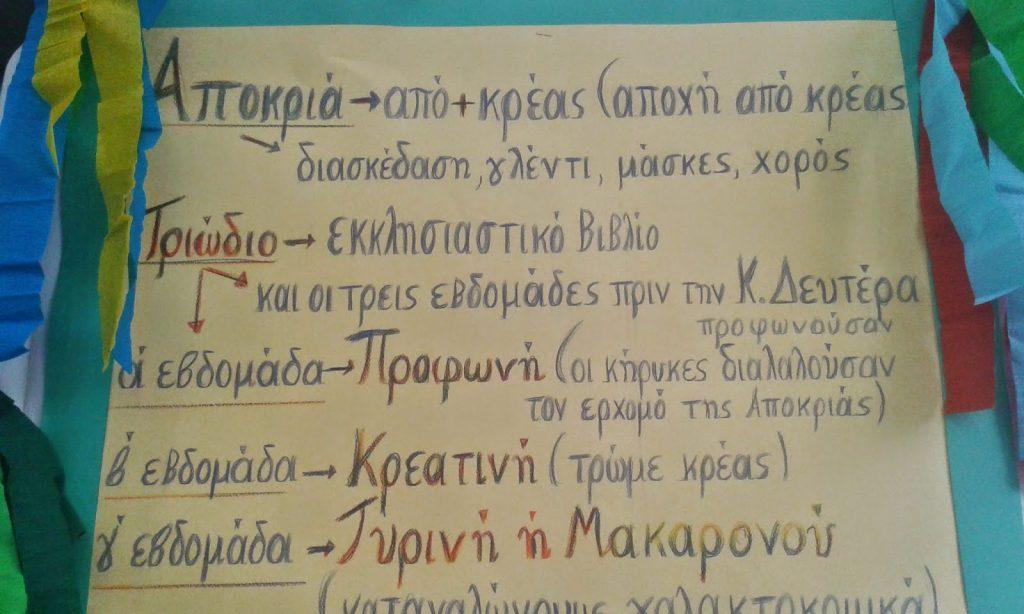 Αποκριά → από + κρέας (αποχή από κρέας
διασκέδαση, γλέντι, μάσκες, χορός
Τριώδιο → εκκλησιαστικό βιβλίο
και οι τρεις εβδομάδες πριν την Κ. Δευτέρα
προφωνούσαν
α' εβδομάδα → Προφωνή (οι κήρυκες διαλαλούσαν
τον ερχομό της Αποκριάς)
β' εβδομάδα → Κρεατινή (τρώμε κρέας)
γ' εβδομάδα → Τυρινή ή Μακαρονού
(καταναλώνουμε γαλακτοκομικά)